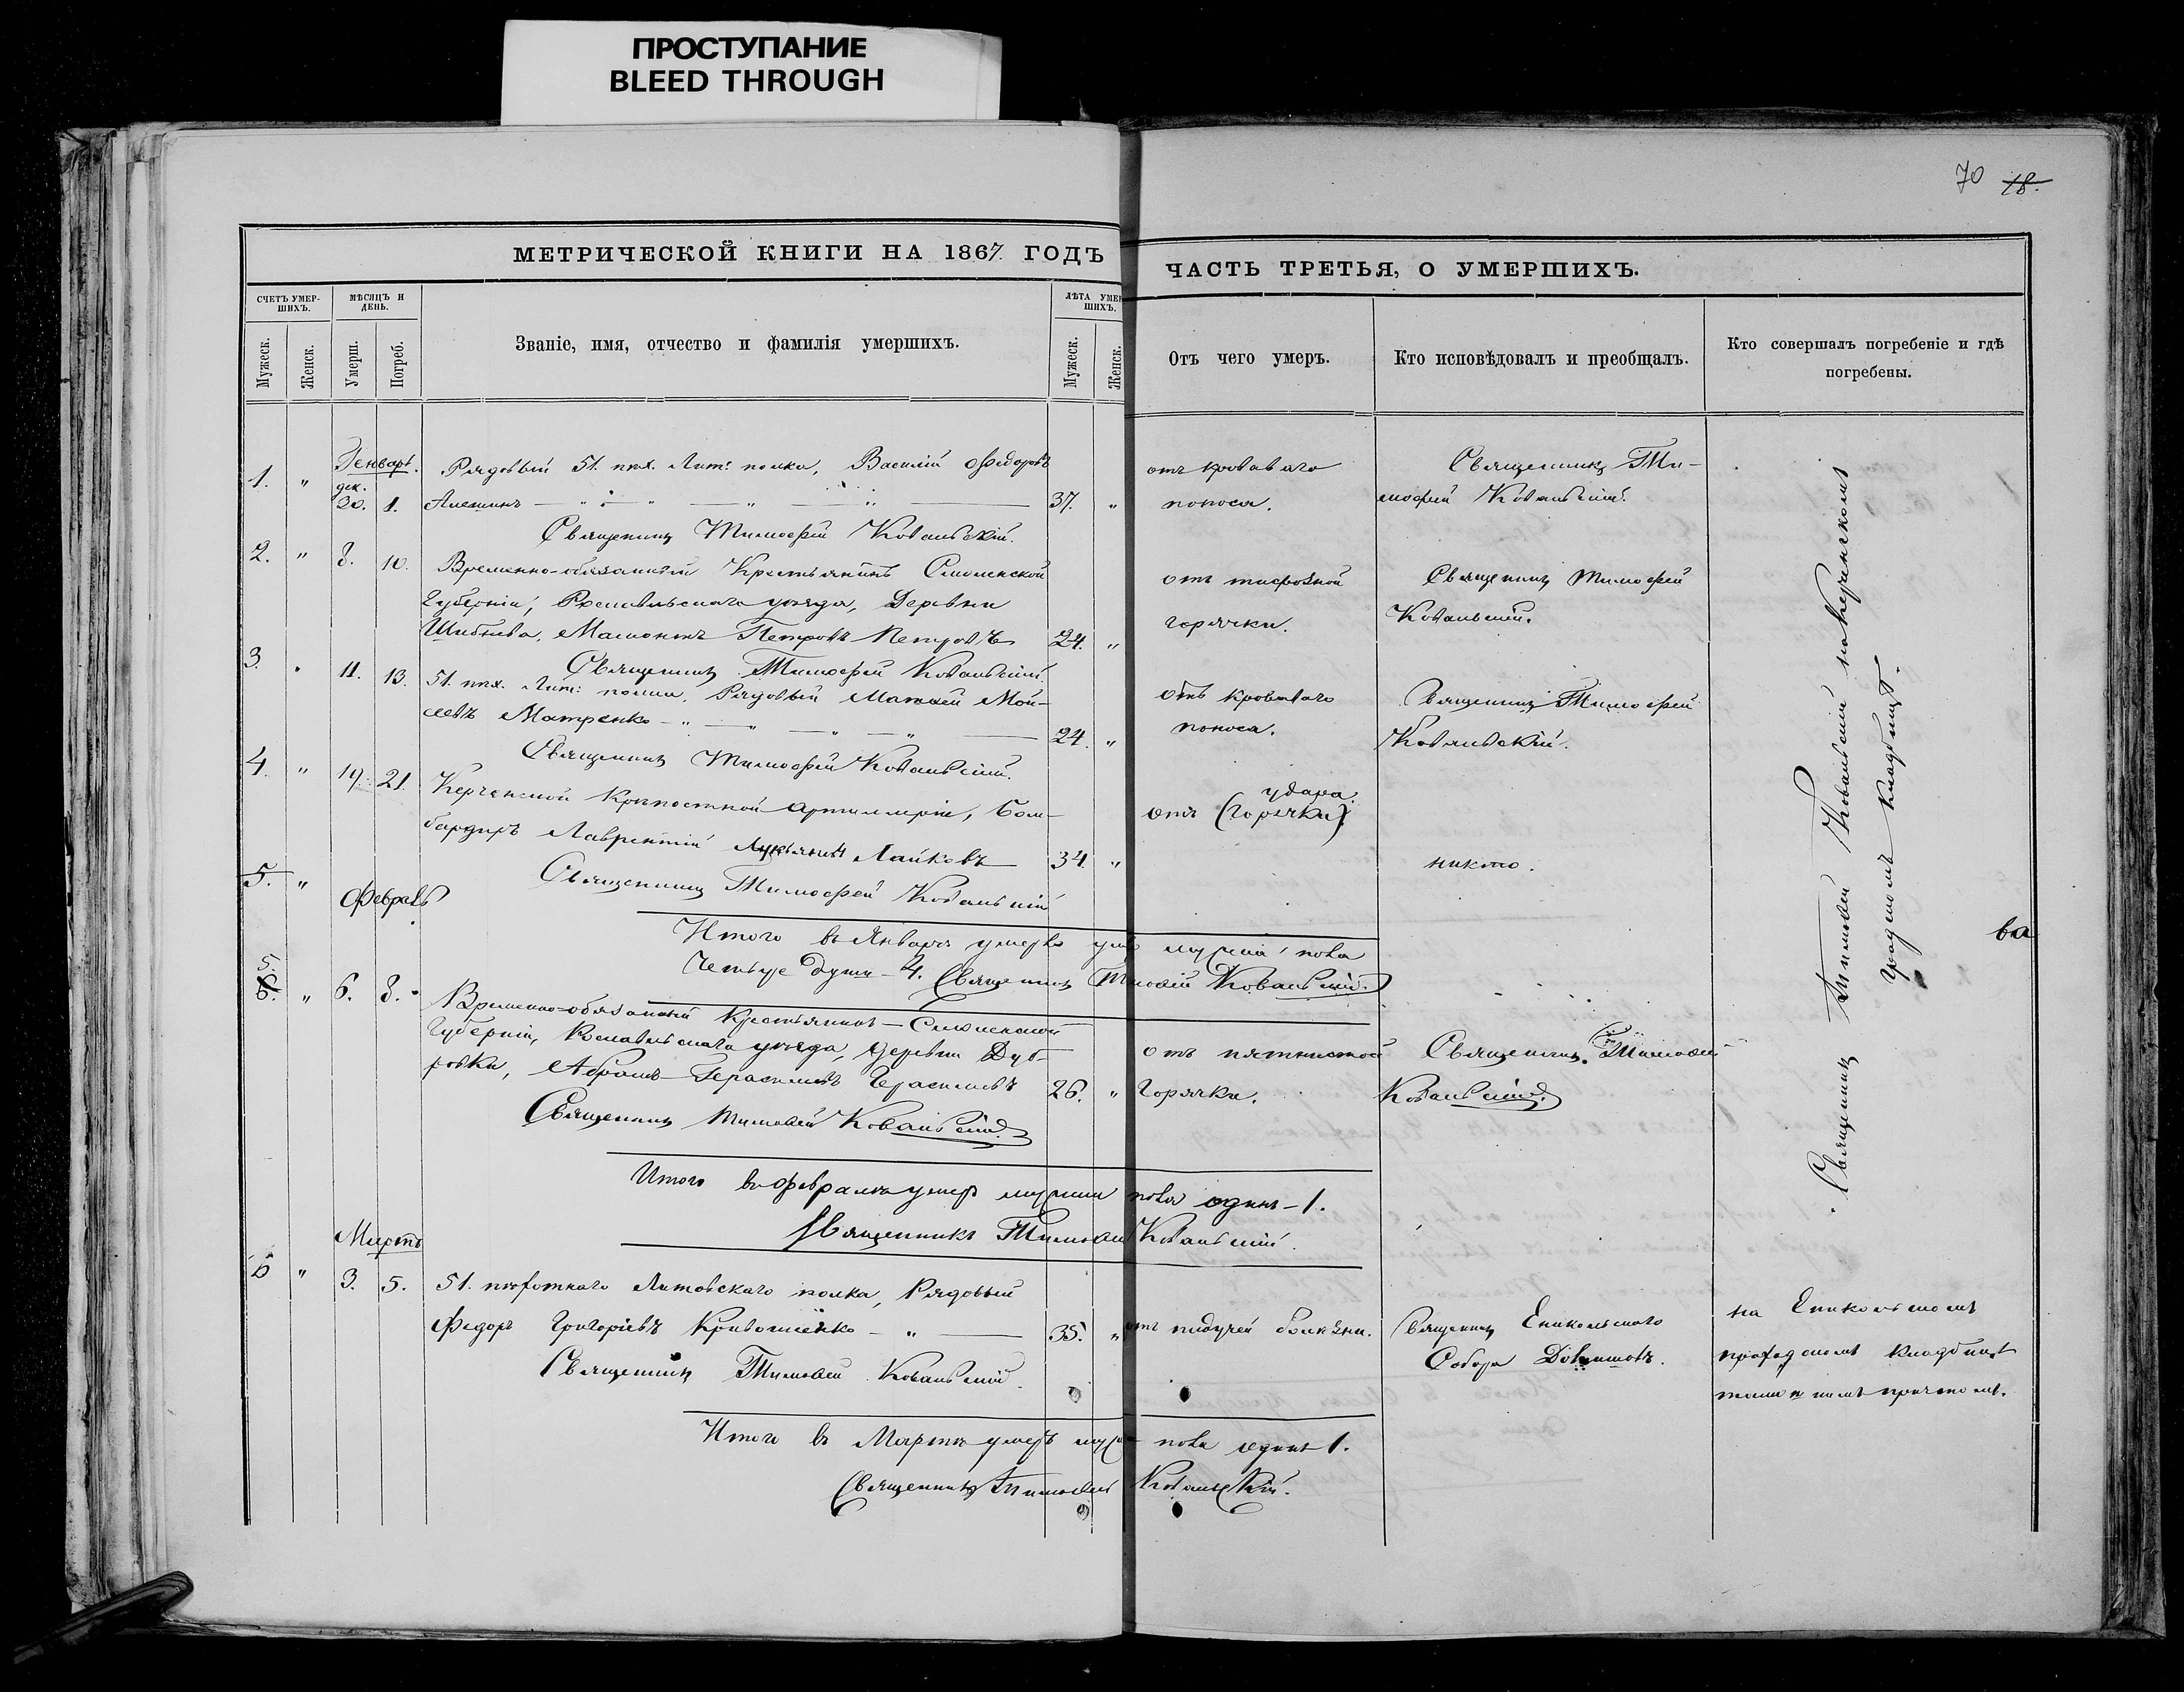 ПРОСТУПАНИЕ
BLEED THROUGH
70 18.
МЕТРИЧЕСКОЙ КНИГИ НА 1867 ГОДЪ
ЧАСТЬ ТРЕТЬЯ, О УМЕРШИХЪ.
СЧЕТЪ УМЕР-
ШИХЪ.
МѢСЯЦЪ И
ДЕНЬ.
Званіе, имя, отчество и фамилія умершихъ.
ЛѢТА УМЕР
ШИХЪ.
Мужеск.
Женск.
Умерш.
Погреб.
Мужеск.
Женск.
Отъ чего умеръ.
Кто исповѣдовалъ и преобщалъ.
Кто совершалъ погребеніе и гдѣ
погребены.
Генварь.
1. " дек. 30. 1. Рядовый 51. пѣх. Лит: полка, Василій Ѳедоровъ
Алешинъ 37. "
отъ кроваваго
поноса.
Священникъ Ти-
мофей Ковальскій.
Священникъ Тимофей Ковальскій.
2. " 8. 10. Временно-обязанный Крестьянинъ Смоленской
Губерніи, Рославльскаго уѣзда, Деревни
Шибнева, Мамонтъ Петровъ Петровъ 24. "
отъ тифозной
горячки.
Священникъ Тимофей
Ковальскій.
Священникъ Тимофей Ковальскій.
3. " 11. 13. 51. пѣх. Лит: полка, Рядовый Матвей Мой-
сеевъ Матренко 24. "
отъ кроваваго
поноса.
Священникъ Тимофей
Ковальскій.
Священникъ Тимофей Ковальскій.
4. " 19. 21. Керченской Крѣпостной Артиллеріи, Бом-
бардиръ Лаврентій Лукьяновъ Лайковъ 34. "
удара
отъ (горячки).
никто.
Священникъ Тимофей Ковальскій
5. "
Февраль
Итого въ Январѣ умерло мужска пола
Четыре души - 4. Священникъ Тимофей Ковальскій.
5.
6. " 6. 8. Временно-обязанный Крестьянинъ Смоленской
Губерніи, Рославльскаго уѣзда, деревни Дуб-
ровки, Абрамъ Герасимовъ Герасимовъ 26. "
отъ пятнистой
горячки.
Священникъ Тимофей
Ковальскій.
Священникъ Тимофей Ковальскій.
Итого въ Февралѣ умеръ мужска пола одинъ - 1.
Священникъ Тимофей Ковальскій.
Мартъ
6 " 3. 5. 51. пѣхотнаго Литовскаго полка, Рядовый
Федоръ Григорьевъ Кривошеенко 35. "
отъ падучей болѣзни.
Священникъ Еникольскаго
Собора
на Еникольскомъ
городскомъ кладбищѣ
тамошнимъ причтомъ.
Священникъ Тимофей Ковальскій.
Итого въ Мартѣ умеръ муж. пола одинъ 1.
Священникъ Тимофей Ковальскій.
Священникъ Тимофей Ковальскій на Керченскомъ
градскомъ кладбищѣ.
ва